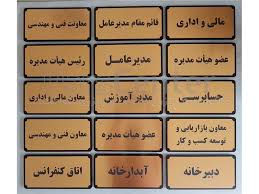 مالی و اداری
قائم مقام مدیرعامل
معاونت فنی و مهندسی
عضو هیأت مدیره
مدیرعامل
رئیس هیأت مدیره
حسابرسی
مدیر آموزش
معاون مالی و اداری
معاون بازاریابی و
توسعه کسب و کار
عضو هیأت مدیره
معاون فنی و مهندسی
دبیرخانه
آبدارخانه
اتاق کنفرانس